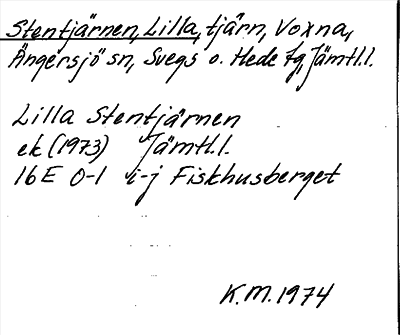 Stentjärnen, Lilla, tjärn, Voxna,
Ängersjö sn, Svegs o. Hede tg, Jämtl.l.
Lilla Stentjärnen
ek (1973) Jämtl.l.
16E 0-1 i-j Fiskhusberget
K.M. 1974